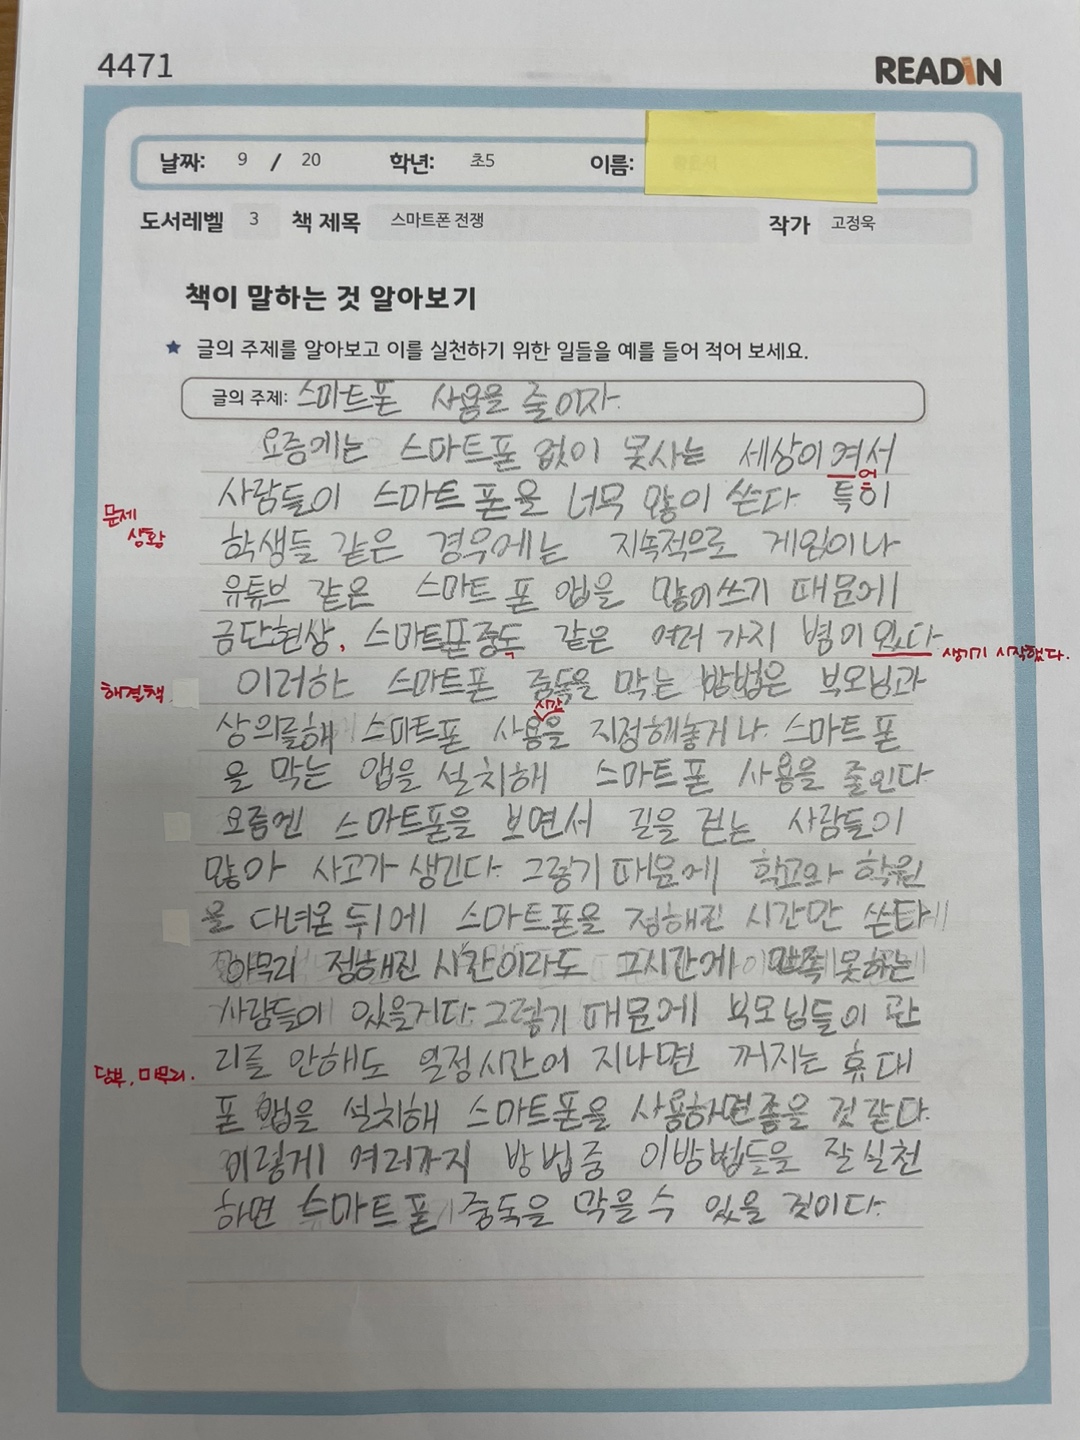 4471
READIN
날짜: 9 / 20 학년: 초5 이름:
도서레벨 3 책 제목 스마트폰 전쟁 작가 고정욱
책이 말하는 것 알아보기
★ 글의 주제를 알아보고 이를 실천하기 위한 일들을 예를 들어 적어 보세요.
글의 주제: 스마트폰 사용을 줄이자.
요즘에는 스마트폰 없이 못사는 세상이 여서
어
사람들이 스마트폰을 너무 많이 쓴다. 특히
문제
상황
학생들 같은 경우에는 지속적으로 게임이나
유튜브 같은 스마트폰 앱을 많이쓰기 때문에
금단현상, 스마트폰중독 같은 여러 가지 병이 있다
생기기 시작했다.
해결책
이러한 스마트폰 중독을 막는 방법은 부모님과
시간
상의를해 스마트폰 사용을 지정해놓거나 스마트폰
을 막는 앱을 설치해 스마트폰 사용을 줄인다
요즘엔 스마트폰을 보면서 길을 걷는 사람들이
많아 사고가 생긴다. 그렇기 때문에 학교와 학원
을 다녀온 뒤에 스마트폰을 정해진 시간만 쓴다
아무리 정해진 시간이라도 그시간에 만족 못하는
사람들이 있을거다. 그렇기 때문에 부모님들이 관
리를 안해도 일정시간이 지나면 꺼지는 휴대
당부, 마무리.
폰 앱을 설치해 스마트폰을 사용하면좋을 것 같다.
이렇게 여러가지 방법중 이방법들을 잘 실천
하면 스마트폰 중독을 막을 수 있을 것이다.